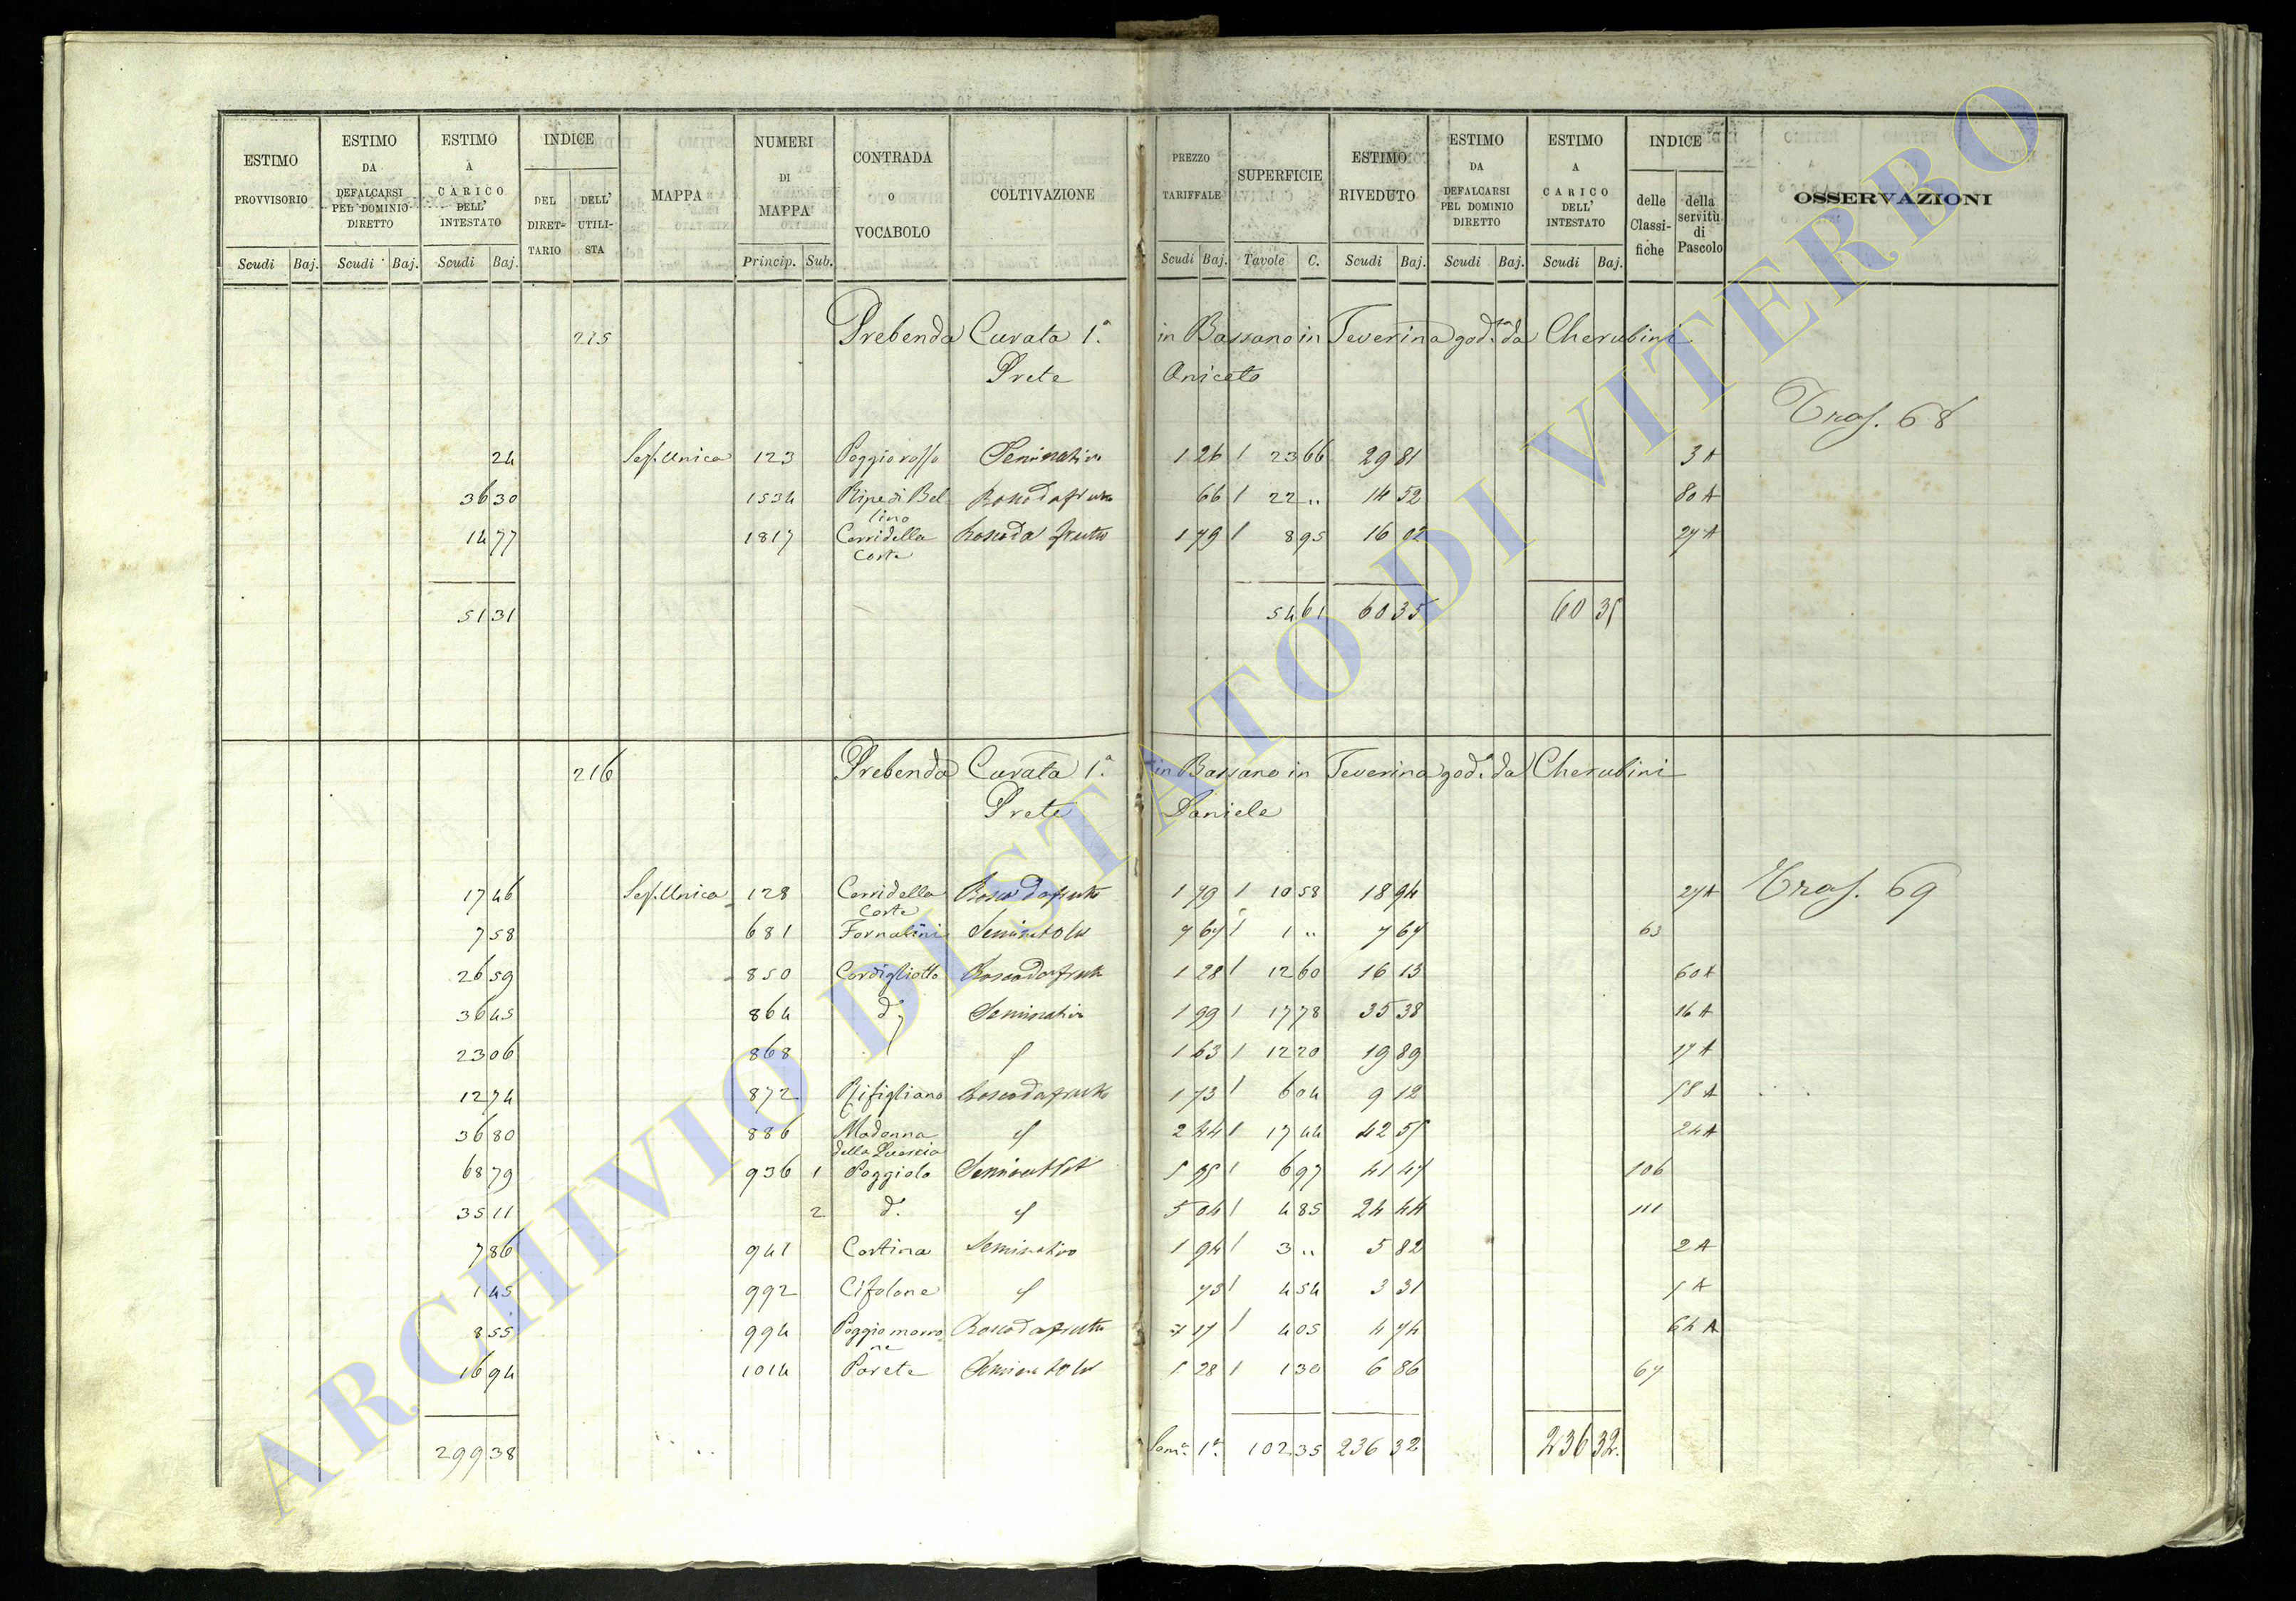 ESTIMO PROVVISORIO Scudi Baj.
ESTIMO DA DEFALCARSI PEL DOMINIO DIRETTO Scudi Baj.
ESTIMO A CARICO DELL' INTESTATO Scudi Baj.
INDICE DEL DIRET-TARIO DELL' UTILI-STA
MAPPA
NUMERI DI MAPPA Princip. Sub.
CONTRADA o VOCABOLO
COLTIVAZIONE
PREZZO TARIFFALE Scudi Baj.
SUPERFICIE Tavole C.
ESTIMO RIVEDUTO Scudi Baj.
ESTIMO DA DEFALCARSI PEL DOMINIO DIRETTO Scudi Baj.
ESTIMO A CARICO DELL' INTESTATO Scudi Baj.
INDICE delle Classi-fiche della servitù di Pascolo
OSSERVAZIONI
215 Prebenda Curata 1.a in Bassano in Teverina god.ta da Cherubini
Prete Aniceto
Tras. 68
24 Sez. Unica 123 Poggio rosso Seminativo 1 26 / 23 66 29 81 3 A
36 30 1534 Ripe di Bel lino Bosco da frutto 66 / 22 " 14 52 80 A
14 77 1817 Cerri della Corte Bosco da frutto 1 79 / 8 95 16 02 27 A
51 31 54 61 60 35 60 35
216 Prebenda Curata 1.a in Bassano in Teverina god.a da Cherubini
Prete Daniele
17 46 Sez. Unica 128 Cerri della Corte Bosco da frutto 1 79 / 10 58 18 94 27 A Tras. 69
7 58 681 Fornalini 7 67 / 1 " 7 67 63
26 59 850 Cordigliotto Bosco da frutto 1 28 / 12 60 16 13 60 A
36 45 864 d.o Seminativo 1 99 / 17 78 35 38 16 A
23 06 868 1 63 / 12 20 19 89 17 A
12 74 872 Rifigliano Bosco da frutto 1 73 / 6 04 9 12 58 A
36 80 886 Madonna della Quercia 2 44 / 17 44 42 55 24 A
68 79 936 1 Poggiolo 5 95 / 6 97 41 47 106
35 11 2 d.o 5 04 / 4 85 24 44 111
7 86 941 Cortina Seminativo 1 94 / 3 " 5 82 2 A
1 45 992 Cifolone 73 / 4 54 3 31 5 A
8 55 994 Poggio morro ne Bosco da frutto 1 17 / 4 05 4 74 64 A
16 94 1014 Parete 5 28 / 1 30 6 86 67
299 38 Som.a 1.a 102 35 236 32 236 32.
ARCHIVIO DI STATO DI VITERBO